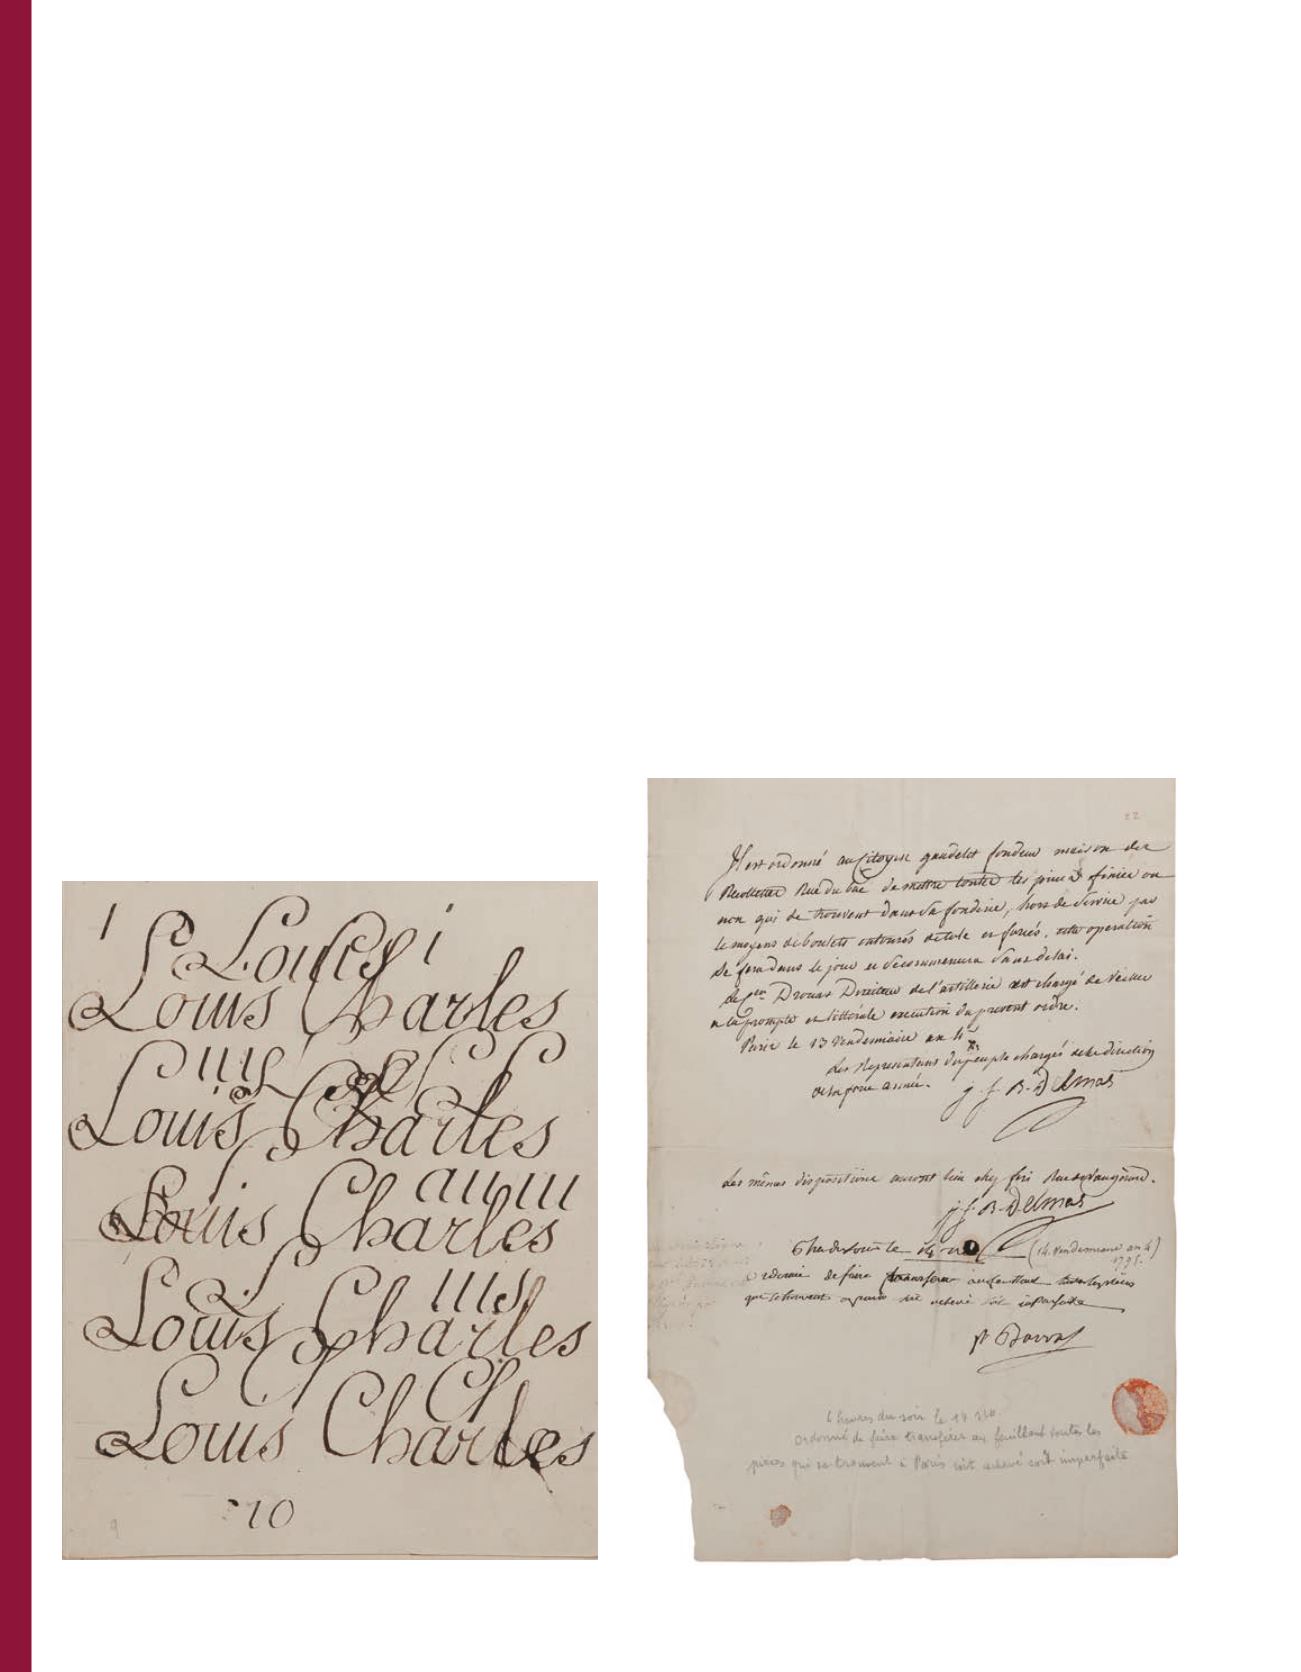 1 L Louis i
Louis Charles
Louis Charles
Louis Charles
Louis Charles
Louis Charles
10
22
Il est ordonné au Citoyen gaudelet fondeur maison des
Recollettes Rue du bac de mettre toutes les pieces finies ou
non qui se trouvent dans sa fonderie, hors de service par
le moyens de boulets entourés de tole et forcés. cette operation
se fera dans le jour et Commencera sans delai.
Le Drouas Directeur de l'artillerie est chargé de veiller
a la prompte et littérale execution du present ordre.
Paris le 13 Vendemiaire an 4
Les Representans du peuple chargés de la direction
de la force armée. j. f. B. Delmas
Les mêmes dispositions auront lieu chez Rue de Vaugirard.
j. f. B. Delmas
(14. Vendemiaire an 4)
1795.
ordonné de faire transferer
que se trouvent a paris soit achevé soit imparfaite
p. Barras
6 heures du soir le 14
ordonné de faire transferer au feuillant toutes les
pièces qui se trouvent à Paris soit achevé soit imparfaite